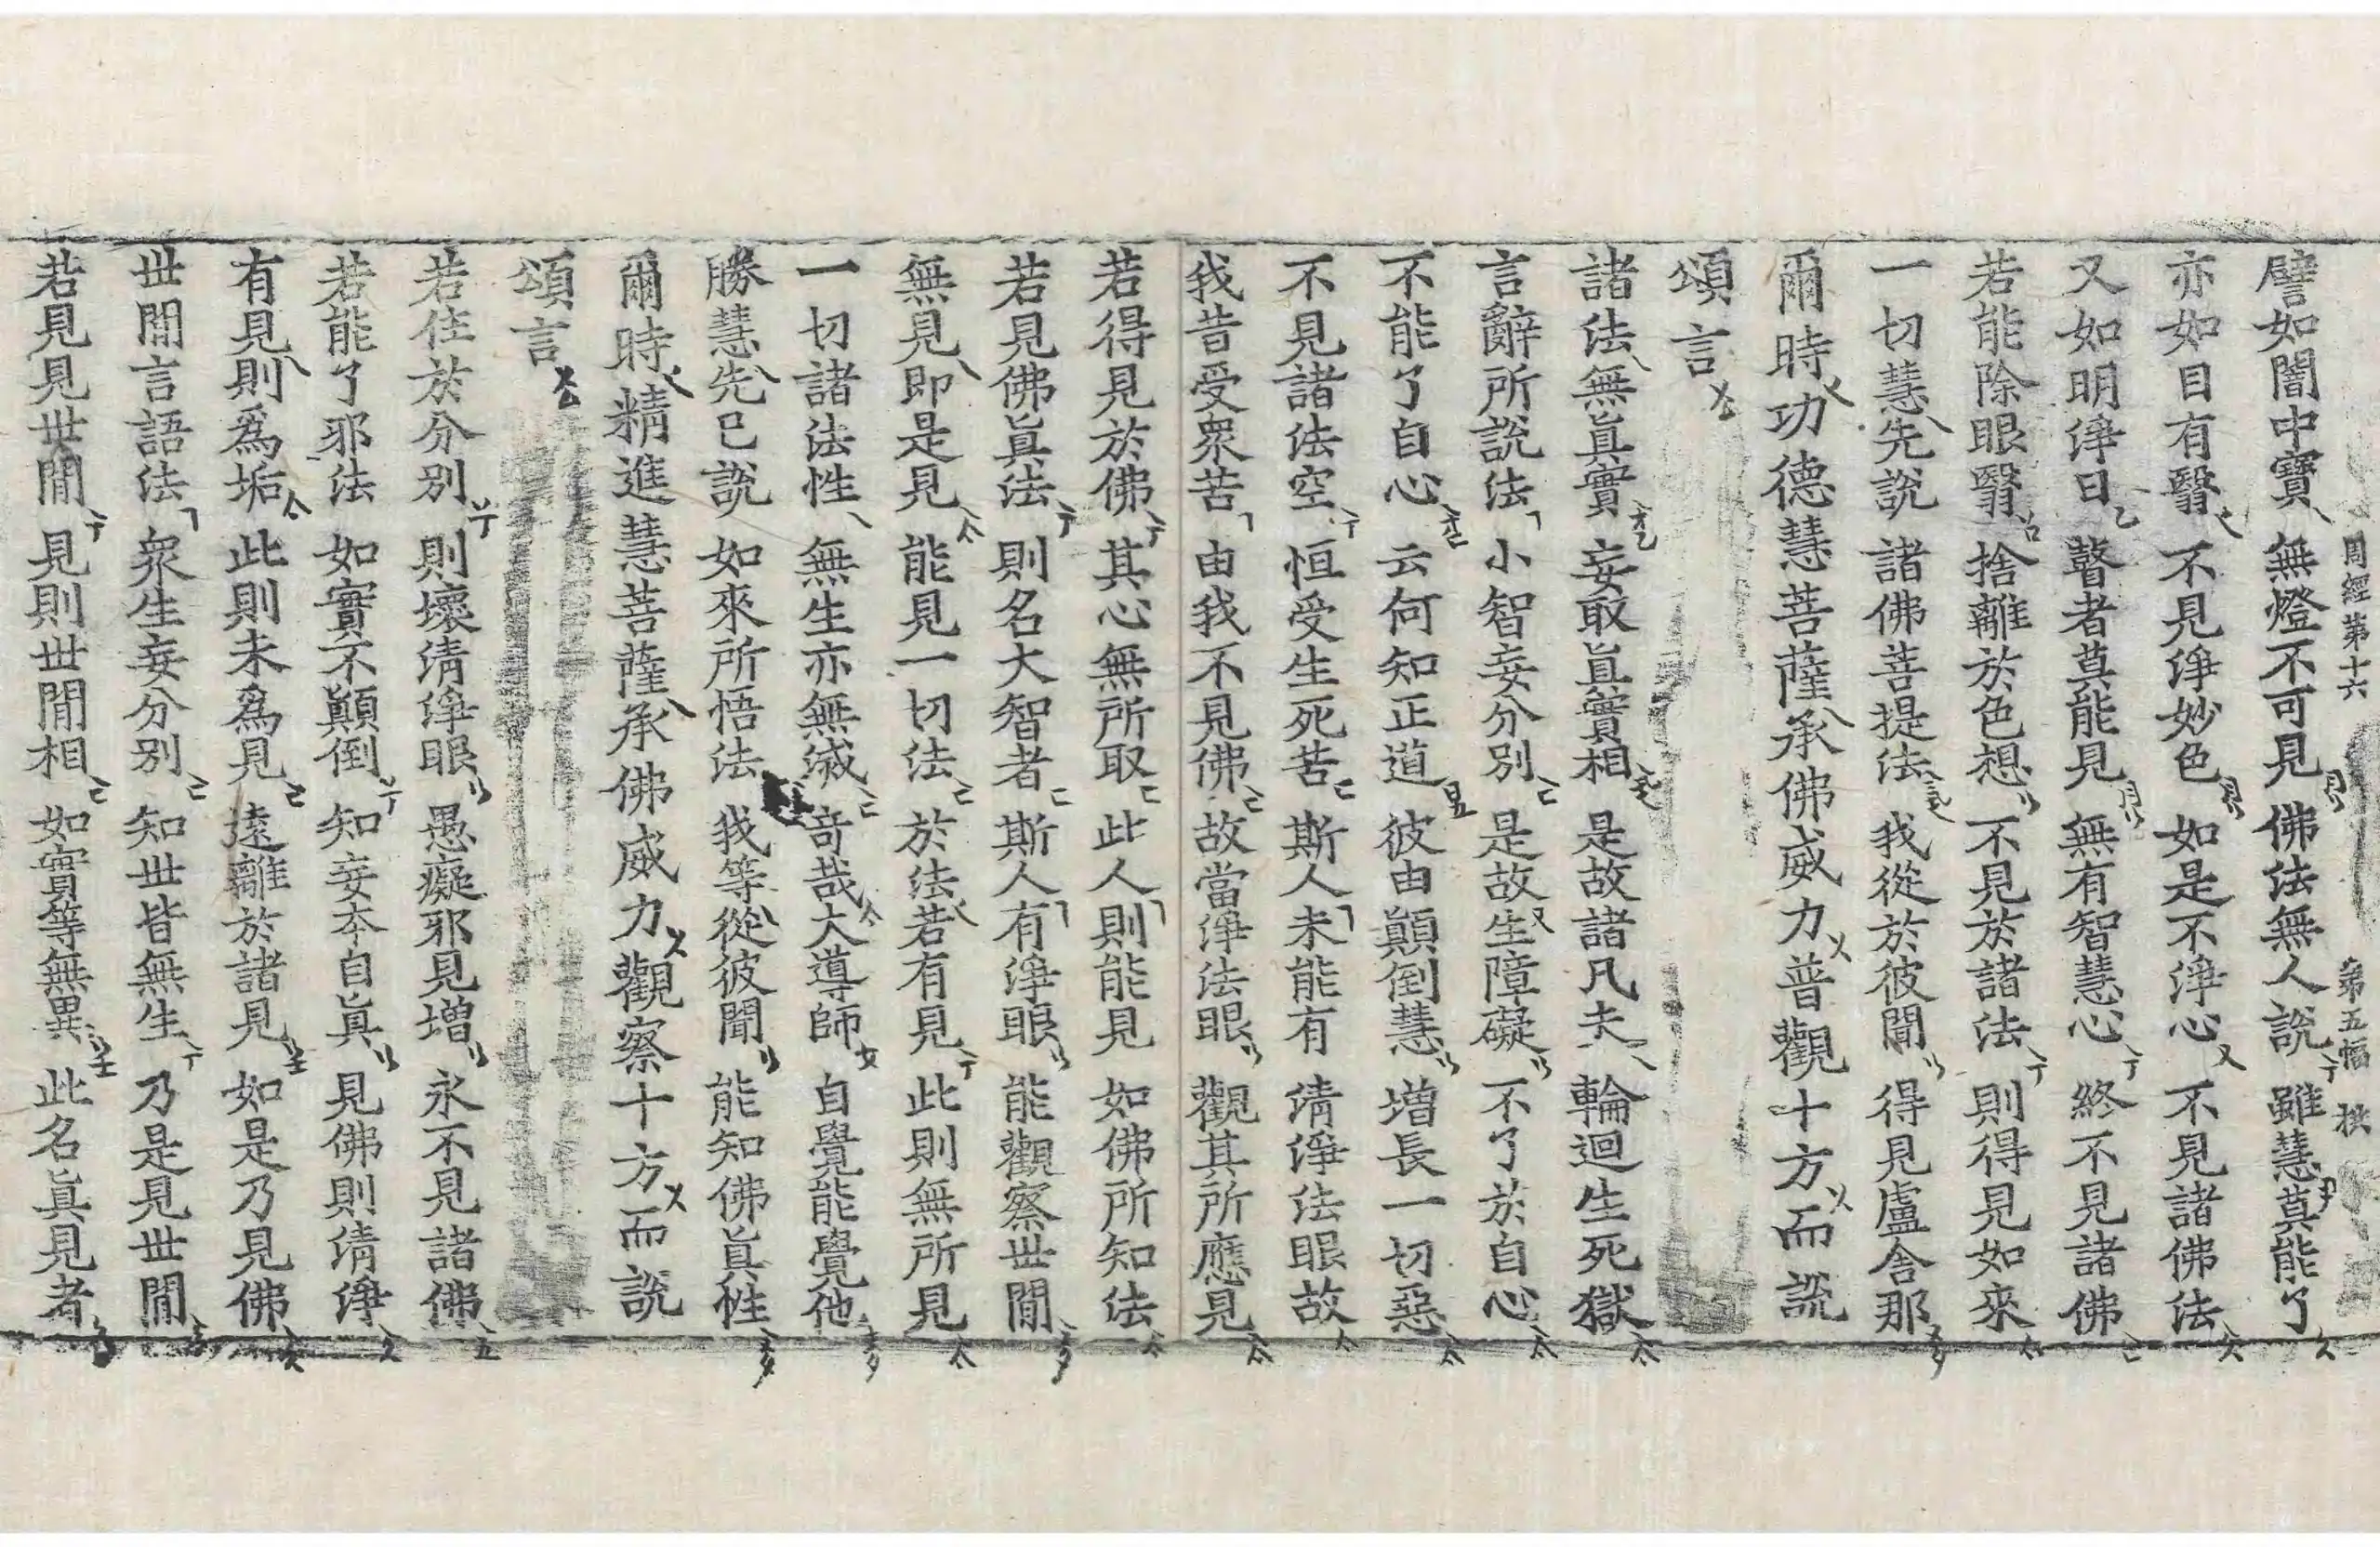 周經第十六 第五幅 拱
譬如闇中寶 無燈不可見 佛法無人說 雖慧莫能了
亦如目有翳 不見淨妙色 如是不淨心 不見諸佛法
又如明淨日 瞽者莫能見 無有智慧心 終不見諸佛
若能除眼翳 捨離於色想 不見於諸法 則得見如來
一切慧先說 諸佛菩提法 我從於彼聞 得見盧舍那
爾時功德慧菩薩承佛威力普觀十方而說
頌言
諸法無眞實 妄取眞實相 是故諸凡夫 輪迴生死獄
言辭所說法 小智妄分別 是故生障礙 不了於自心
不能了自心 云何知正道 彼由顚倒慧 增長一切惡
不見諸法空 恒受生死苦 斯人未能有 清淨法眼故
我昔受衆苦 由我不見佛 故當淨法眼 觀其所應見
若得見於佛 其心無所取 此人則能見 如佛所知法
若見佛眞法 則名大智者 斯人有淨眼 能觀察世間
無見即是見 能見一切法 於法若有見 此則無所見
一切諸法性 無生亦無滅 奇哉大導師 自覺能覺他
勝慧先已說 如來所悟法 我等從彼聞 能知佛眞性
爾時精進慧菩薩承佛威力觀察十方而說
頌言
若住於分別 則壞清淨眼 愚癡邪見增 永不見諸佛
若能了邪法 如實不顚倒 知妄本自眞 見佛則清淨
有見則爲垢 此則未爲見 遠離於諸見 如是乃見佛
世間言語法 衆生妄分別 知世皆無生 乃是見世間
若見見世間 見則世間相 如實等無異 此名眞見者